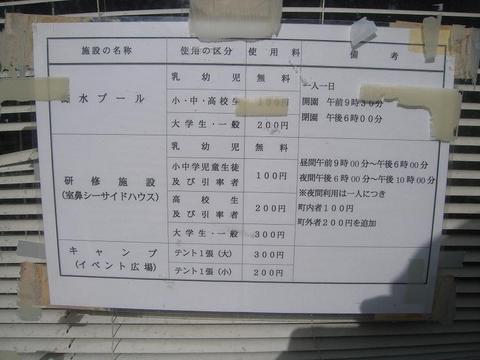 施設の名称 使用の区分 使用料 備考
水プール
乳幼児 無料 一人一日
小・中・高校生 100円 開園 午前9時30分
大学生・一般 200円 閉園 午後6時00分
研修施設
(室鼻シーサイドハウス)
乳幼児 無料
小中学児童生徒
及び引率者 100円
高校生
及び引率者 200円
大学生・一般 300円
昼間午前9時00分~午後6時00分
夜間午後6時00分~午後10時00分
※夜間利用は一人につき
町内者100円
町外者200円を追加
キャンプ
(イベント広場)
テント1張(大) 300円
テント1張(小) 200円